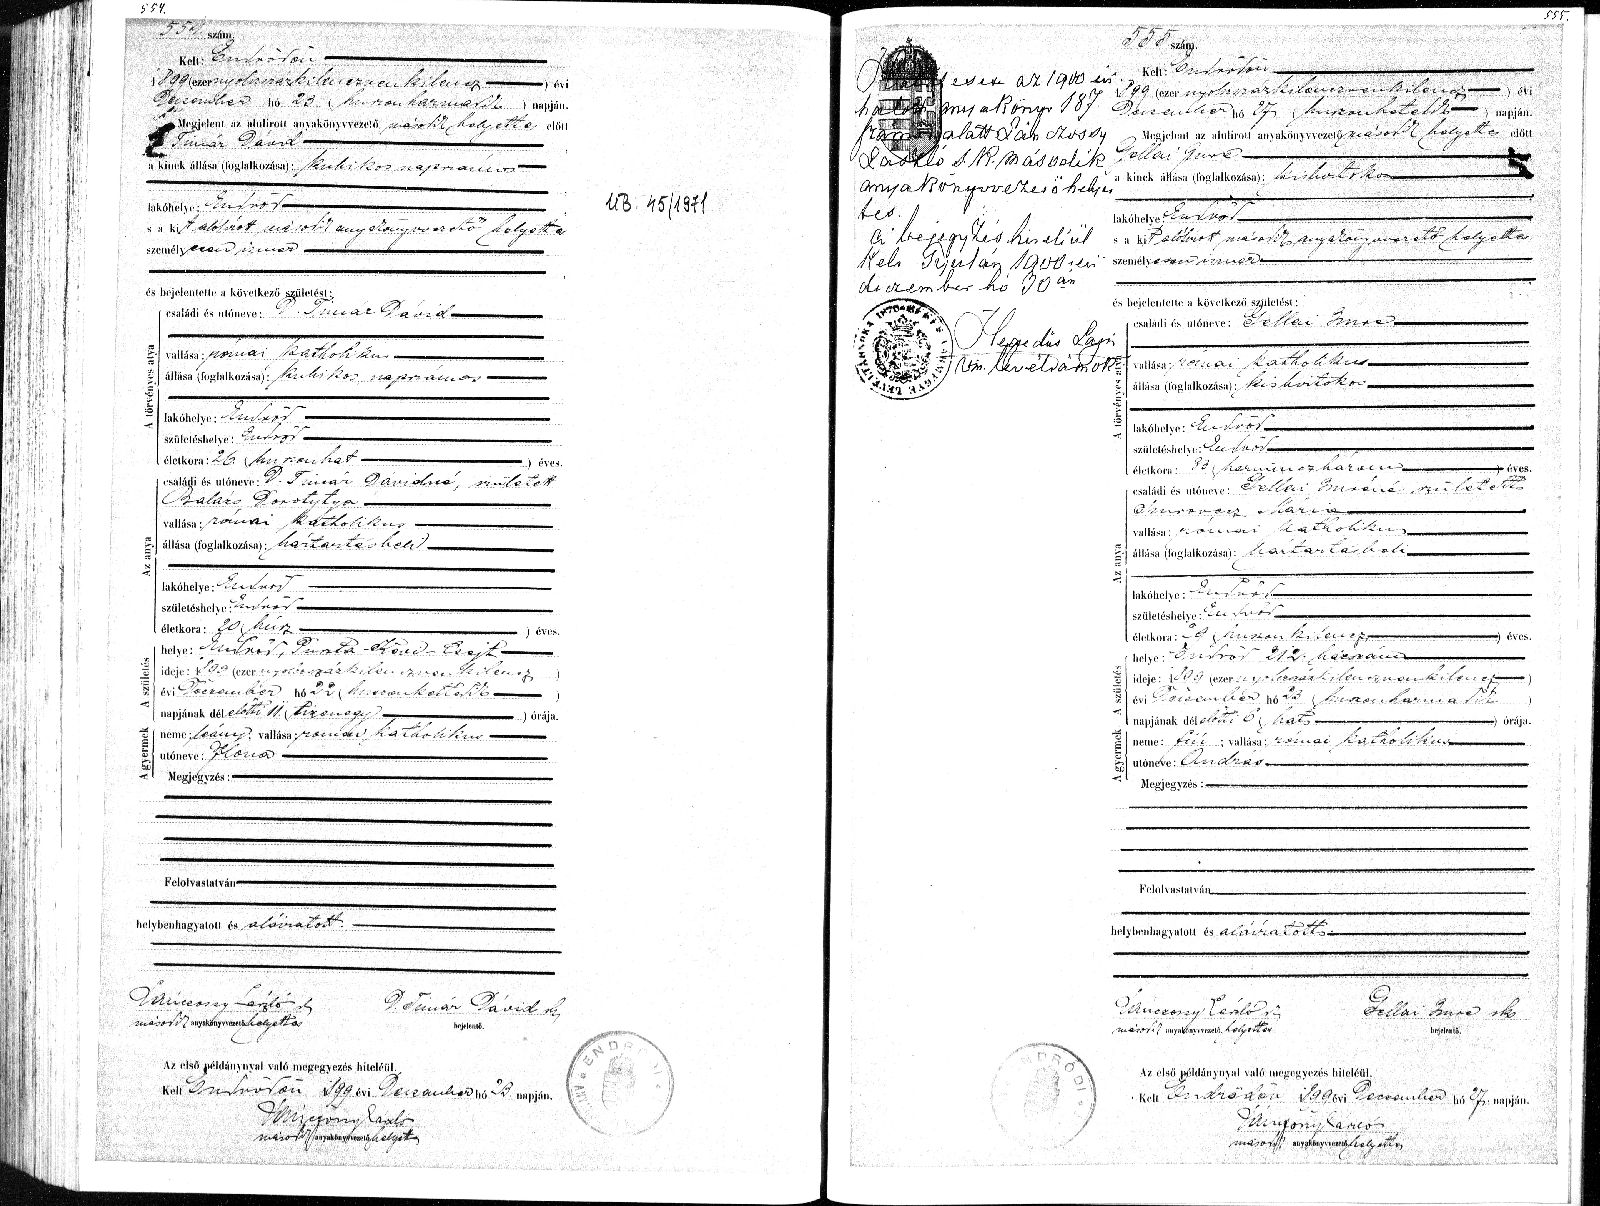 554.
554. szám.
Kelt: Endrődön
1899 (ezer nyolcszázkilenczvenkilencz) évi
Deczember hó 23 (huszonharmadik) napján.
Megjelent az alulirott anyakönyvvezető második helyettes előtt
D. Timár Dávid
a kinek állása (foglalkozása): kubikos napszámos
lakóhelye: Endrőd
s a kit alólirott második anyakönyvvezető helyettes
személyesen ismer
és bejelentette a következő születést:
A törvényes atya
családi és utóneve: D. Timár Dávid
vallása: római katholikus
állása (foglalkozása): kubikos napszámos
lakóhelye: Endrőd
születéshelye: Endrőd
életkora: 26 (huszonhat) éves.
Az anya
családi és utóneve: D. Timár Dávidné, született
Balázs Dorottya
vallása: római katholikus
állása (foglalkozása): háztartásbeli
lakóhelye: Endrőd
születéshelye: Endrőd
életkora: 20 (húsz) éves.
A születés
helye: Endrőd, Puszta-Kövd-Csejt
ideje: 1899 (ezer nyolcszázkilenczvenkilencz)
évi Deczember hó 22 (huszonkettedik)
napjának dél előtti 11 (tizenegy) órája.
A gyermek
neme: leány; vallása: római katholikus
utóneve: Ilona
Megjegyzés:
Felolvastatván
helybenhagyatott és aláiratott.
D. Timár Dávid sk
második anyakönyvvezető helyettes
bejelentő.
Az első példánynyal való megegyezés hiteléül.
Kelt Endrődön 1899 évi Deczember hó 23 napján.
második anyakönyvvezető helyettes
ENDRŐDI
UB. 45/1971
555.
az 1900 évi
anyakönyv 187
szám alatt Lánczosy
László s. k. második
anyakönyvvezető helyet
tes.
A bejegyzés hiteléül
Kelt Gyulán 1900 évi
deczember hó 30 án
Hegedüs Lajos
vm. levéltárnok
BÉKÉS VÁRMEGYE LEVÉLTÁRNOKA 1876
555 szám.
Kelt: Endrődön
1899 (ezer nyolcszázkilenczvenkilencz) évi
Deczember hó 27 (huszonhetedik) napján.
Megjelent az alulirott anyakönyvvezető második helyettes előtt
Gellai Imre
a kinek állása (foglalkozása): kisbirtokos
lakóhelye Endrőd
s a kit alólirott második anyakönyvvezető helyettes
személyesen ismer
és bejelentette a következő születést:
A törvényes atya
családi és utóneve: Gellai Imre
vallása: római katholikus
állása (foglalkozása): kisbirtokos
lakóhelye: Endrőd
születéshelye: Endrőd
életkora: 33 (harminczhárom) éves.
Az anya
családi és utóneve: Gellai Imréné született
Mária
vallása: római katholikus
állása (foglalkozása): háztartásbeli
lakóhelye: Endrőd
születéshelye: Endrőd
életkora: 29 (huszonkilencz) éves.
A születés
helye: Endrőd 212. házszám
ideje: 1899 (ezer nyolcszázkilenczvenkilencz)
évi Deczember hó 23 (huszonharmadik)
napjának dél előtti 6 (hat) órája.
A gyermek
neme: fiú; vallása: római katholikus
utóneve: András
Megjegyzés:
Felolvastatván
helybenhagyatott és aláiratott
Gellai Imre sk
második anyakönyvvezető helyettes
bejelentő.
Az első példánynyal való megegyezés hiteléül.
Kelt Endrődön 1899 évi Deczember hó 27 napján.
második anyakönyvvezető helyettes
ENDRŐDI